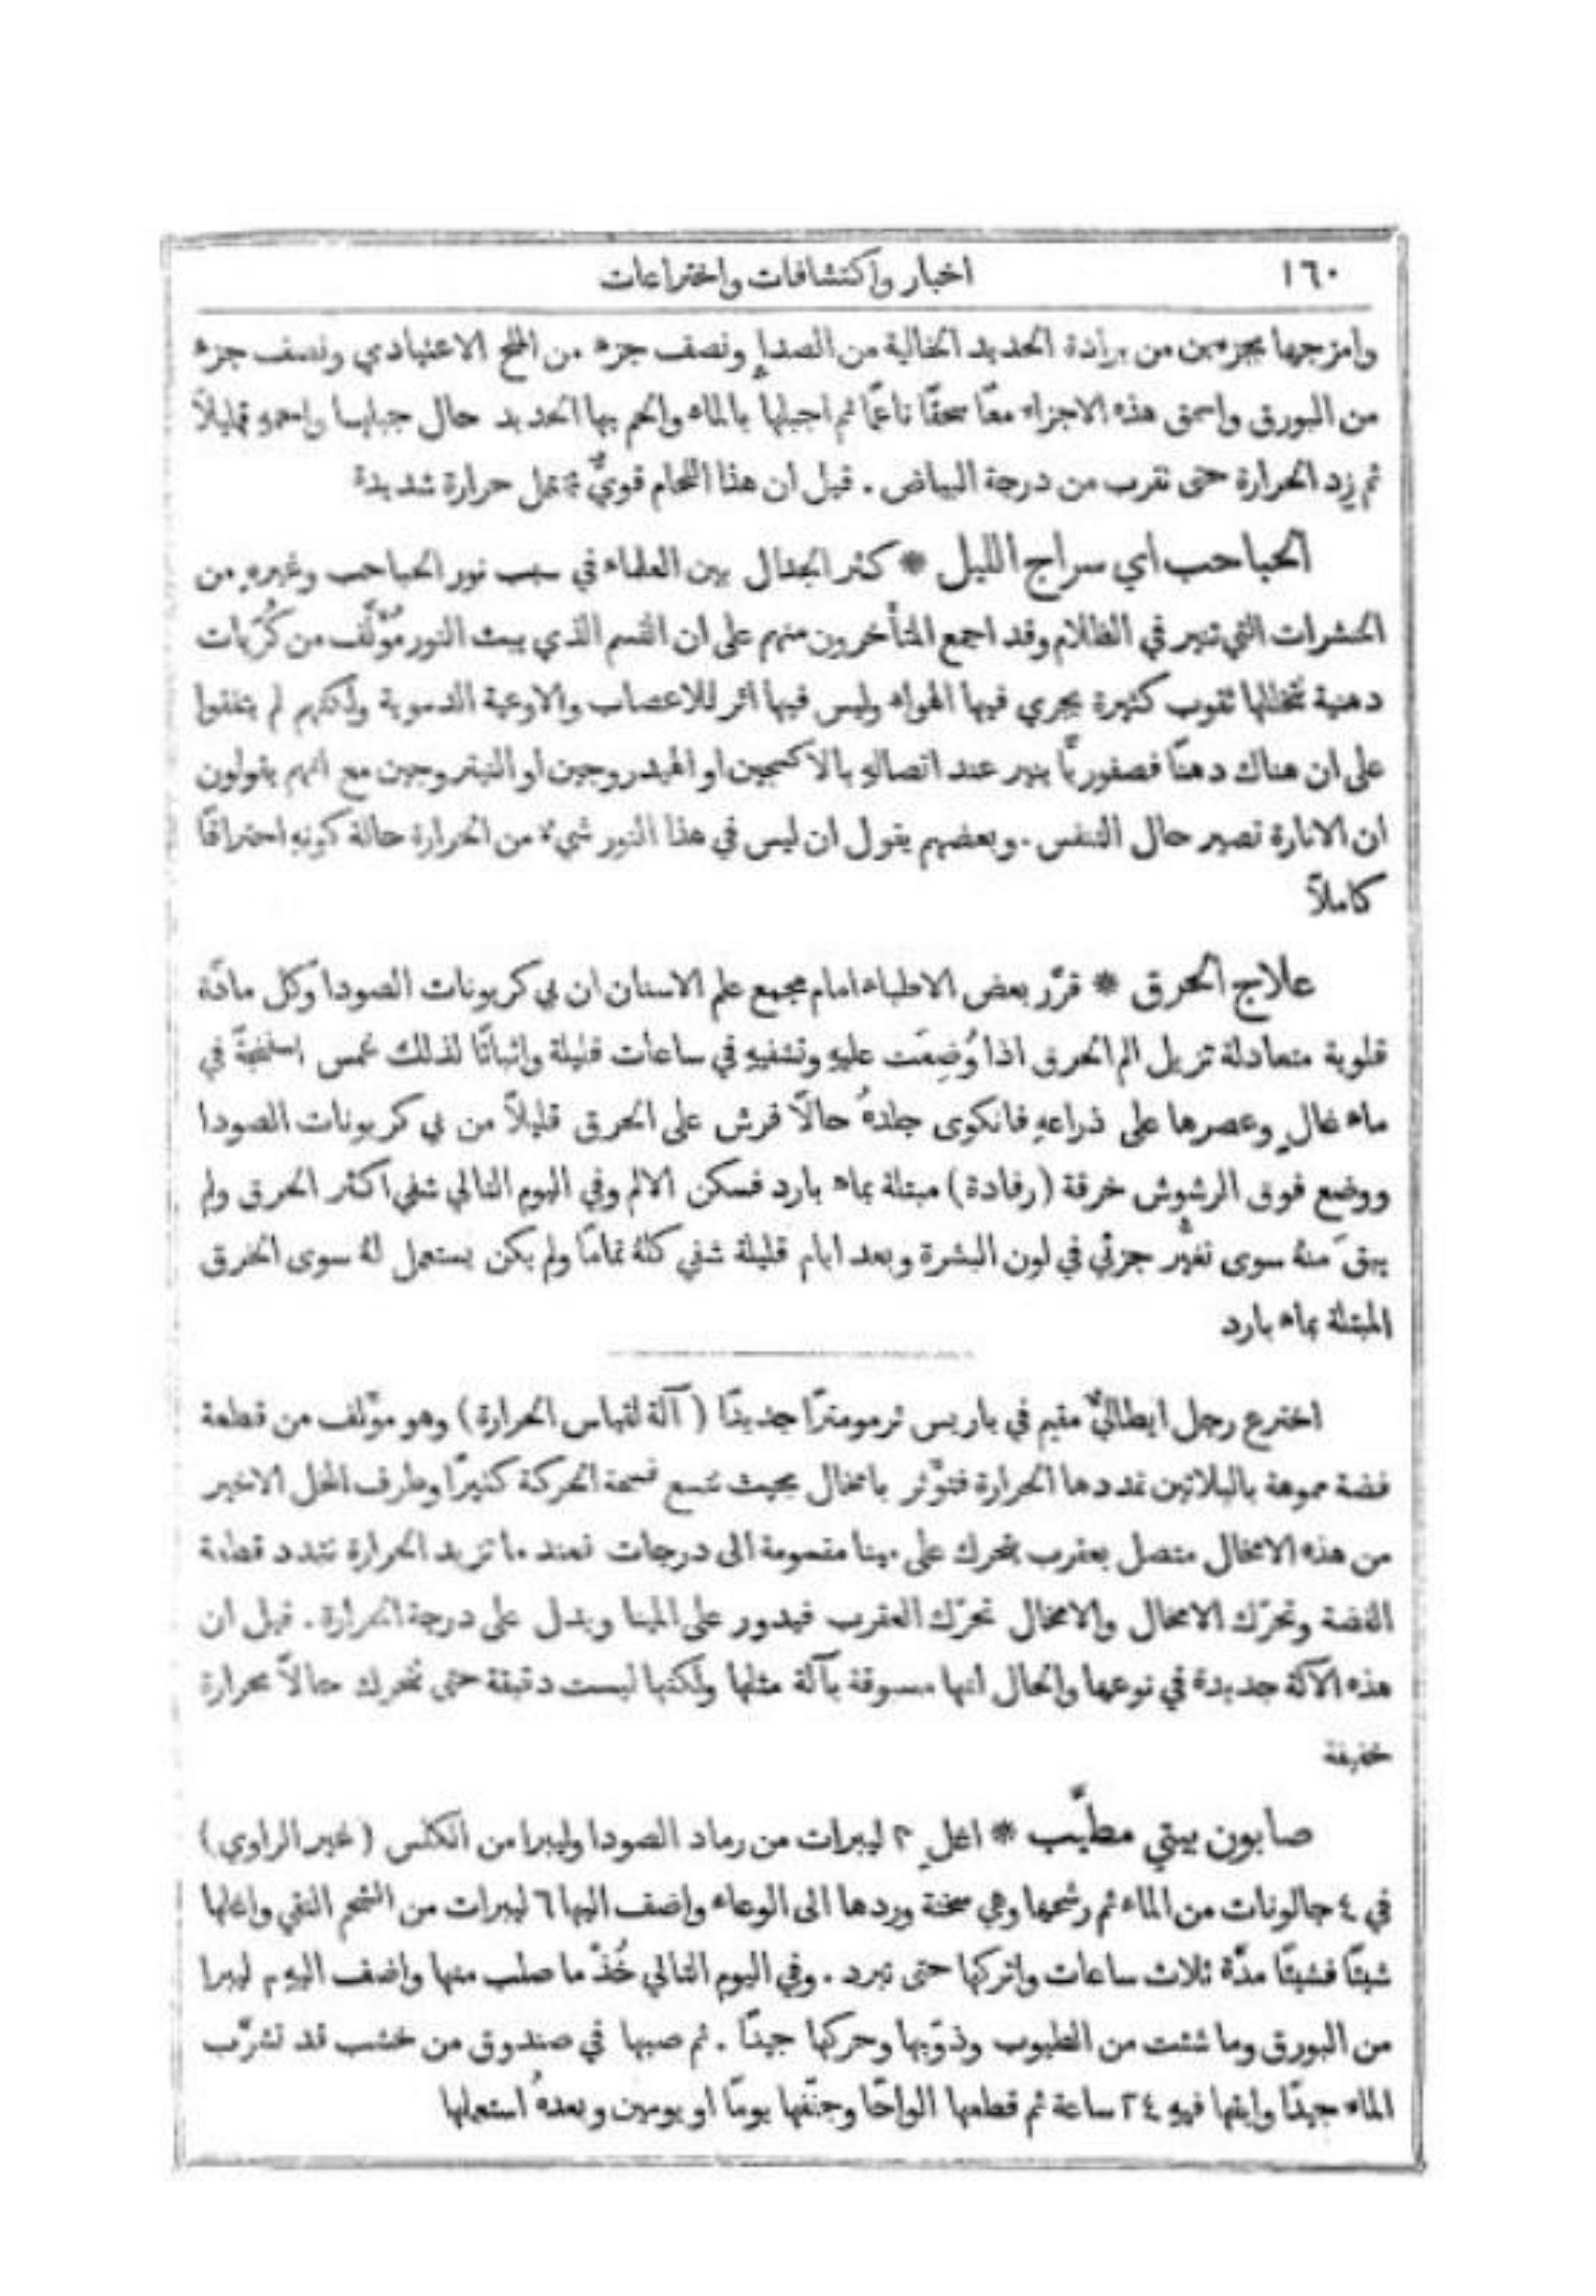 ١٦٠
اخبار واكتشافات واختراعات
وامزجها بجزءين من برادة الحديد الخالية من الصدإ ونصف جزء من الملح الاعنيادي ونصف جزء
من البورق واسحق هذه الاجزاء معًا سحقًا ناعمًا ثم اجبلها بالماء والحم بها الحديد حال جبلها واحمهِ قليلاً
ثم زِد الحرارة حتى نقرب من درجة البياض . قيل ان هذا اللحام قويٌّ يحتمل حرارة شديدة
الحباحب اي سراج الليل * كثر الجدال بين العلماء في سبب نور الحباحب وغيرهِ من
الحشرات التي تنير في الظلام وقد اجمع المتأخرون منهم على ان القسم الذي يبث النور مُؤَلَّف من كُرَيات
دهنية تخللها ثقوب كثيرة يجري فيها الهواء وليس فيها اثر للاعصاب والاوعية الدموية ولكنهم لم يتفقوا
على ان هناك دهنًا فصفوريًّا ينير عند اتصالهِ بالاكسجين او الهيدروجين او النيتروجين مع انهم يقولون
ان الانارة تصير حال التنفس . وبعضهم يقول ان ليس في هذا النور شيءٌ من الحرارة حالة كونهِ احتراقًا
كاملاً
علاج الحرق * قرَّر بعض الاطباء امام مجمع علم الاسنان ان بي كربونات الصودا وكل مادَّة
قلوية متعادلة تزيل الم الحرق اذا وُضِعَت عليهِ وتشفيهِ في ساعات قليلة واثباتًا لذلك غمس اسفنجةً في
ماء غالٍ وعصرها على ذراعهِ فانكوى جلدهُ حالاً فرش على الحرق قليلاً من بي كربونات الصودا
ووضع فوق الرشوش خرقة (رفادة) مبتلة بماء بارد فسكن الالم وفي اليوم التالي شفي اكثر الحرق ولم
يبقَ منهُ سوى تغيُّرٍ جزئي في لون البشرة وبعد ايام قليلة شفي كلهُ تمامًا ولم يكن يستعمل لهُ سوى الخرق
المبتلة بماء بارد
اخترع رجل ايطاليٌّ مقيم في باريس ثرمومترًا جديدًا (آلة لقياس الحرارة) وهو مؤلف من قطعة
فضة مموهة بالبلاتين تمددها الحرارة فتؤَثر بامخال بحيث تتسع فسحة الحركة كثيرًا وطرف المخل الاخير
من هذه الامخال متصل بعقرب يتحرك على مينا مقسومة الى درجات فعند ما تزيد الحرارة تتمدد قطعة
الفضة وتحرّك الامخال والامخال تحرّك العقرب فيدور على المينا ويدل على درجة الحرارة . قيل ان
هذه الآلة جديدة في نوعها والحال انها مسبوقة بآلة مثلها ولكنها ليست دقيقة حتى تتحرك حالاً بحرارة
خفيفة
صابون بيتي مطيَّب * اغلِ ٣ ليبرات من رماد الصودا وليبرا من الكلس (غير الراوي)
في ٤ جالونات من الماء ثم رشحها وهي سخنة وردها الى الوعاء واضف اليها ٦ ليبرات من الشحم النقي واغلها
شيئًا فشيئًا مدَّة ثلاث ساعات واتركها حتى تبرد . وفي اليوم التالي خُذْ ما صلب منها واضف اليهِ ليبرا
من البورق وما شئت من الطيوب وذوّبها وحركها جيدًا . ثم صبها في صندوق من خشب قد تشرَّب
الماء جيدًا وابقها فيهِ ٢٤ ساعة ثم قطعها الواحًا وجفّفها يومًا او يومين وبعدهُ استعملها